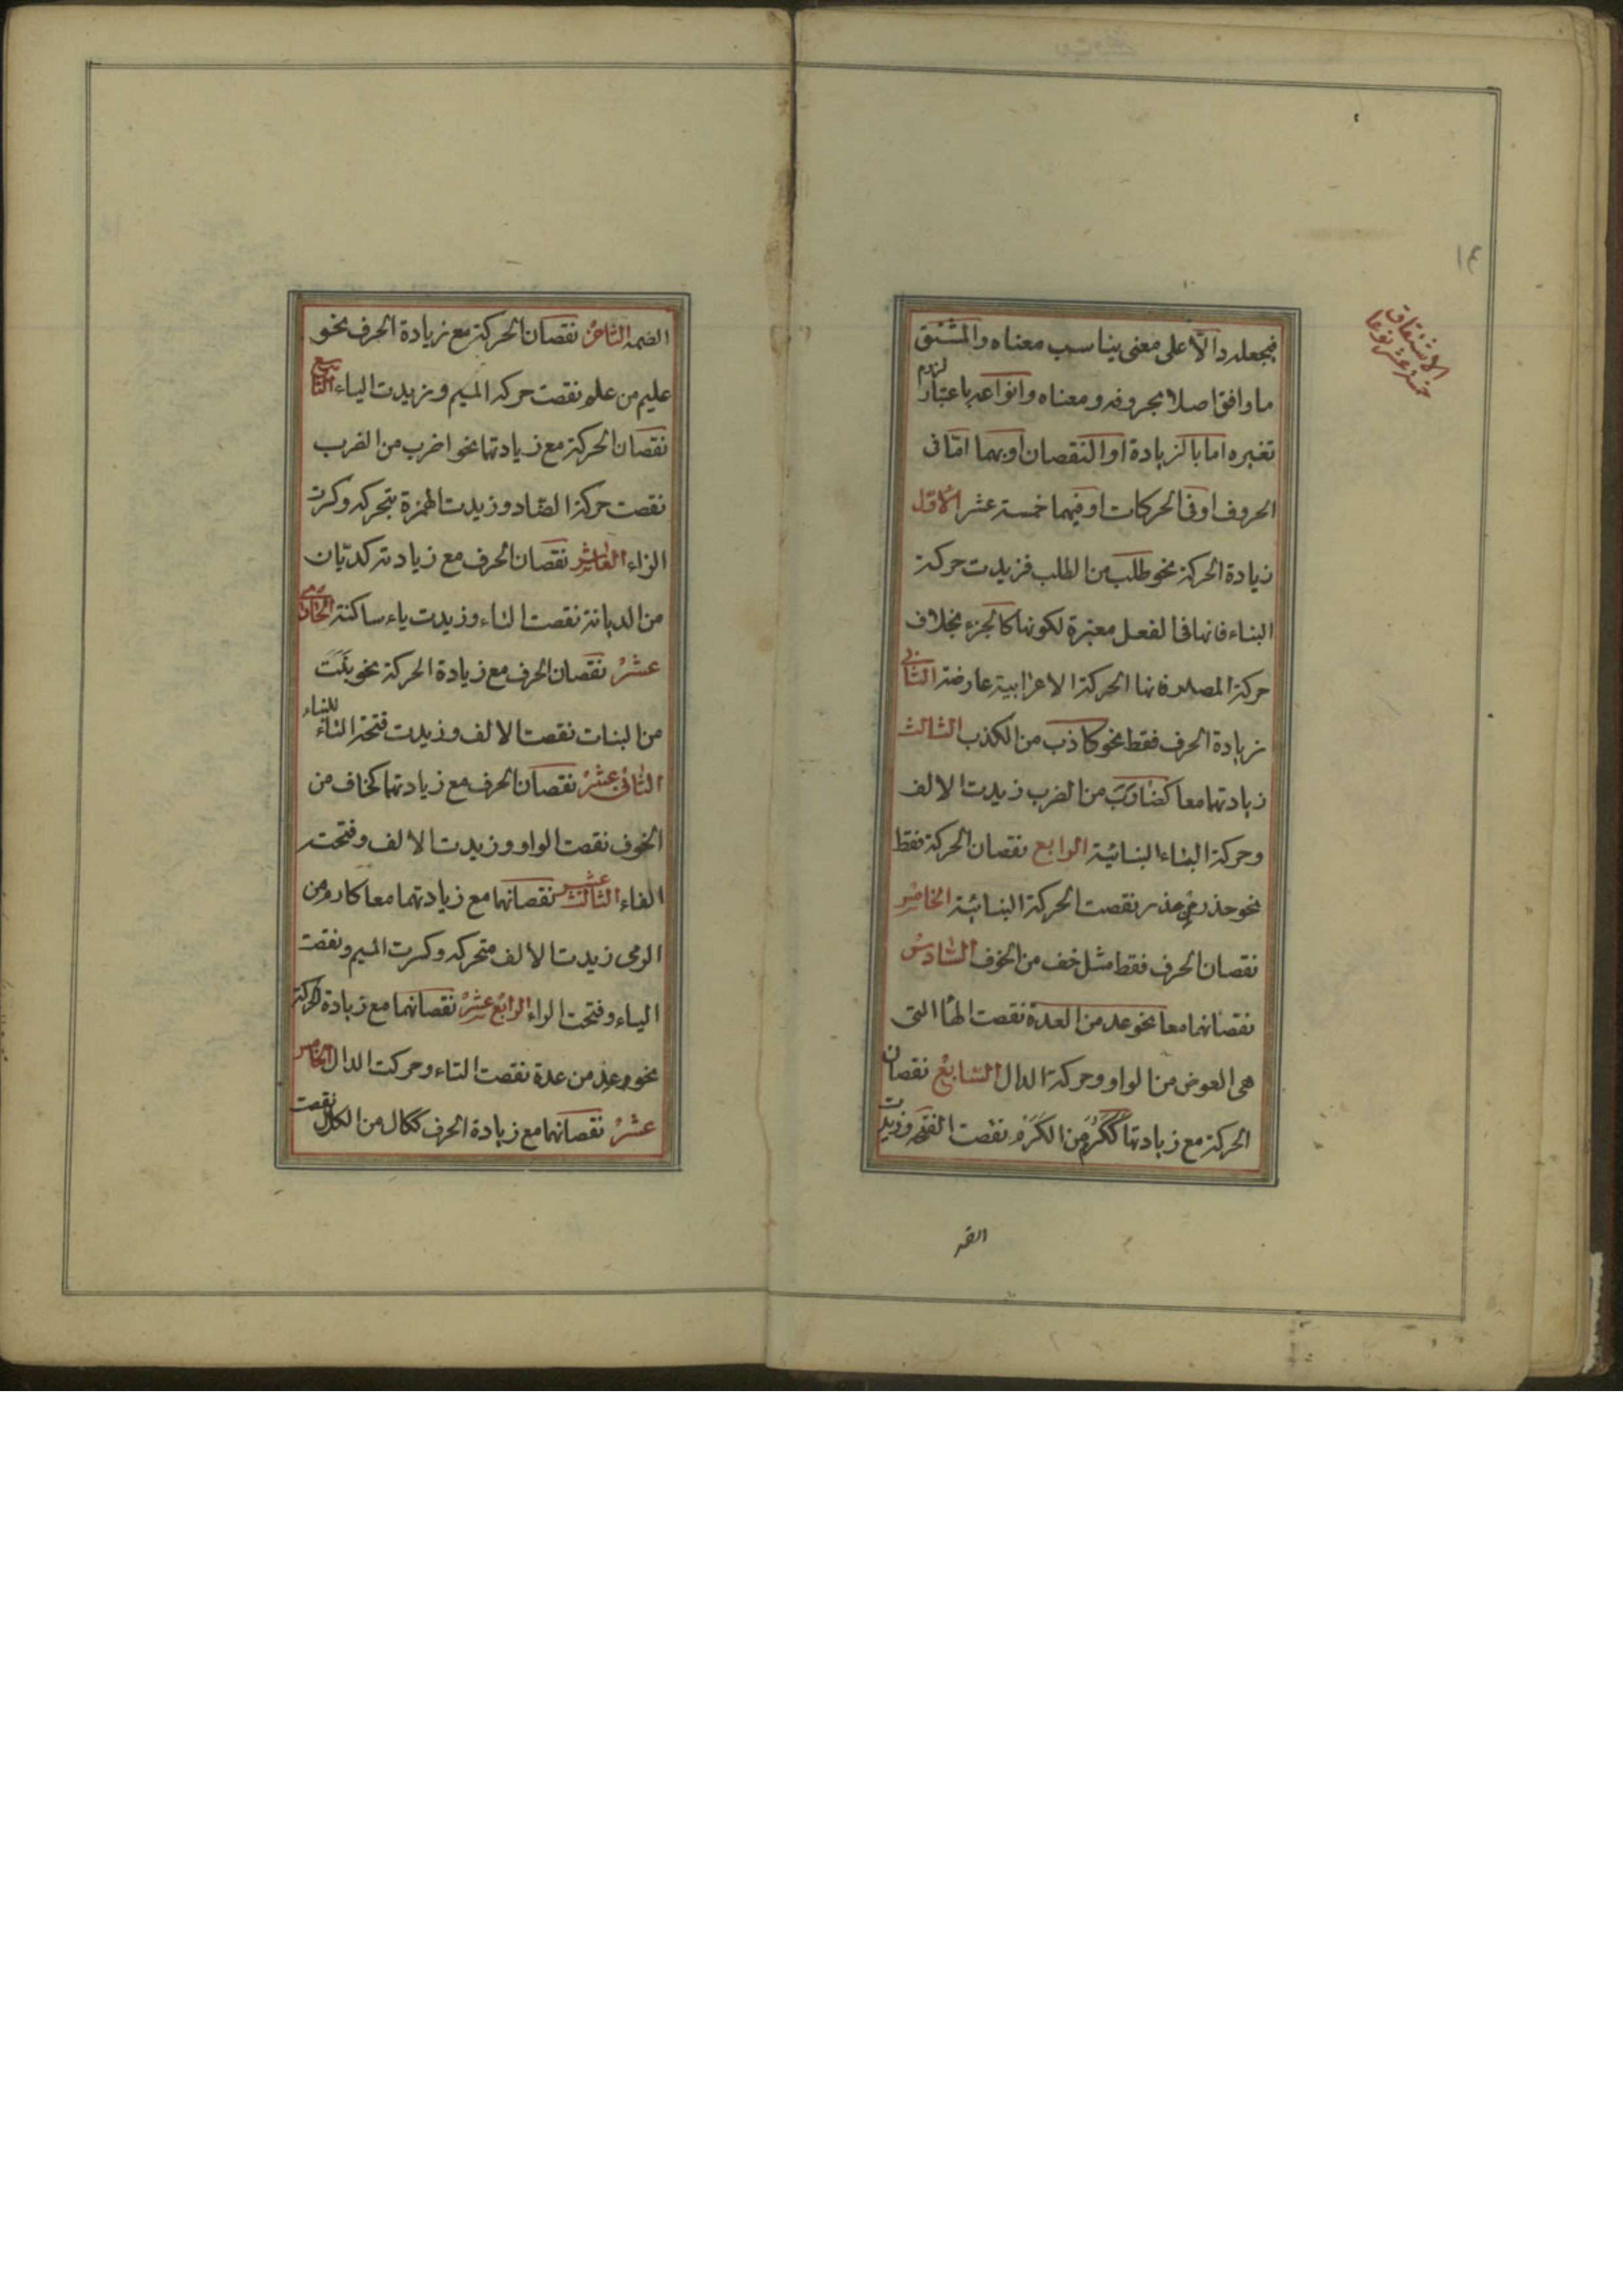 ١٤
الاشتقاق
خمسة عشر نوعا
فيجعله دالا على معنى يناسب معناه والمشتق
ما وافق اصلا بحروفه ومعناه وانواعه باعتبار لزوم
تغيره اما بالزيادة او النقصان او بهما اما فى
الحروف او فى الحركات او فيهما خمسة عشر الاول
زيادة الحركة نحو طلب من الطلب فزيدت حركة
البناء فانها فى الفعل معتبرة لكونها كالجزء بخلاف
حركة المصدر فانها الحركة الاعرابية عارضة الثانى
زيادة الحرف فقط نحو كاذب من الكذب الثالث
زيادتهما معا كضارب من الضرب زيدت الالف
وحركة البناء البنائية الرابع نقصان الحركة فقط
نحو حذر من حذر نقصت الحركة البنائية الخامس
نقصان الحرف فقط مثل خف من الخوف السادس
نقصانهما معا نحو عد من العدة نقصت الهاء التى
هى العوض من الواو وحركة الدال السابع نقصان
الحركة مع زيادتها ككرم من الكرم نقصت الفتحة وزيدت
الضمة
الضمة الثامن نقصان الحركة مع زيادة الحرف نحو
عليم من علم نقصت حركة الميم وزيدت الياء التاسع
نقصان الحركة مع زيادتهما نحو اضرب من الضرب
نقصت حركة الضاد وزيدت الهمزة بتحركه وكسرت
الراء العاشر نقصان الحرف مع زيادته كديّان
من الديانة نقصت التاء وزيدت ياء ساكنة الحادى
عشر نقصان الحرف مع زيادة الحركة نحو بنت
من البنات نقصت الالف وزيدت فتحة التاء للبناء
الثانى عشر نقصان الحرف مع زيادتهما كخاف من
الخوف نقصت الواو وزيدت الالف وفتحت
الفاء الثالث عشر نقصانها مع زيادتهما معا كارم من
الرمى زيدت الالف متحركه وكسرت الميم ونقصت
الياء وفتحت الراء الرابع عشر نقصانهما مع زيادة الحركة
نحو عد من عدة نقصت التاء وحركت الدال الخامس
عشر نقصانهما مع زيادة الحرف ككال من الكلال نقصت